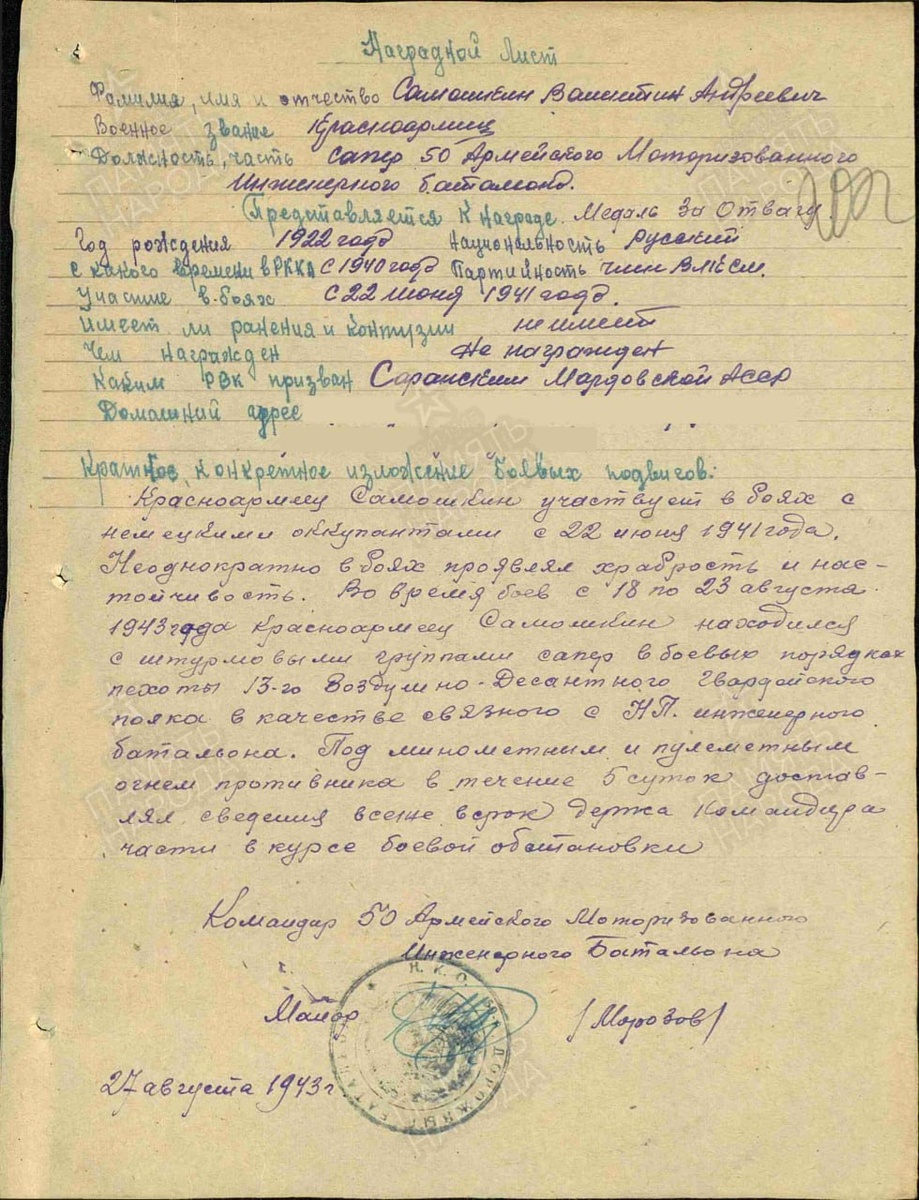 Наградной Лист
Фамилия, имя и отчество Самошкин Валентин Андреевич
Военное звание Красноармеец
Должность, часть сапер 50 Армейского Моторизованного
Инженерного батальона.
Представляется к награде Медаль За Отвагу.
Год рождения 1922 года Национальность Русский
с какого времени в РККА с 1940 года Партийность член ВЛКСМ.
Участие в боях с 22 июня 1941 года.
Имеет ли ранения и контузии не имеет
Чем награжден Не награжден
Каким РВК призван Саранским Мордовской Асср
Домашний адрес
Краткое, конкретное изложение боевых подвигов:
Красноармеец Самошкин участвует в боях с
немецкими оккупантами с 22 июня 1941 года.
Неоднократно в боях проявлял храбрость и нас-
тойчивость. Во время боев с 18 по 23 августа
1943 года Красноармеец Самошкин находился
с штурмовыми группами сапер в боевых порядках
пехоты 13-го Воздушно-Десантного Гвардейского
полка в качестве связного с НП. инженерного
батальона. Под минометним и пулеметным
огнем противника в течение 5 суток достав-
лял сведения всегда в срок держа Командира
части в курсе боевой обстановки
Командир 50 Армейского Моторизованного
Инженерного Батальона
Н.К.О.
Майор /Морозов/
27 августа 1943 г
ПАМЯТЬ НАРОДА